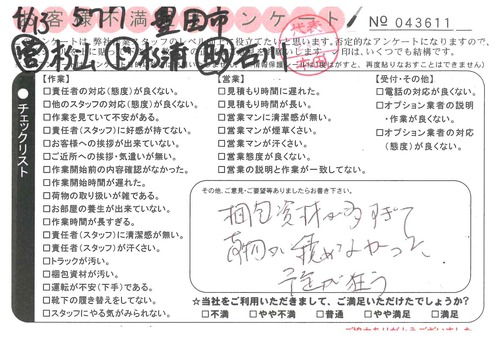 4/13 5771 豊田市
お客様不満足アンケート No 043611
営 松山 下 水浦 助 石川
代表
【作業】
□責任者の対応(態度)が良くない。
□他のスタッフの対応(態度)が良くない。
□作業を見ていて不安がある。
□責任者(スタッフ)に好感が持てない。
□お客様への挨拶が出来ていない。
□ご近所への挨拶・気遣いが無い。
□作業開始前の内容確認がなかった。
□作業開始時間が遅れた。
□荷物の取り扱いが雑である。
□お部屋の養生が出来ていない。
□作業時間が長すぎる。
□責任者(スタッフ)に清潔感が無い。
□責任者(スタッフ)が汗くさい。
□トラックが汚い。
□梱包資材が汚い。
□運転が不安(下手)である。
□靴下の履き替えをしてない。
□スタッフにやる気がみられない。
チェックリスト
【営業】
□見積もり時間に遅れた。
□見積もり時間が長い。
□営業マンに清潔感が無い。
□営業マンが煙草くさい。
□営業マンが汗くさい。
□営業態度が良くない。
□営業の説明と作業が一致してない。
【受付・その他】
□電話の対応が良くない。
□オプション業者の説明
・作業が良くない。
□オプション業者の対応
(態度)が良くない。
その他、ご意見・ご要望等ありましたらお書き下さい。
梱包資材が多すぎて
荷物が積めなかった、
予定が狂う
☆当社をご利用いただきまして、ご満足いただけたでしょうか?
□不満 □やや不満 □普通 □やや満足 □満足
ご協力ありがとうございました